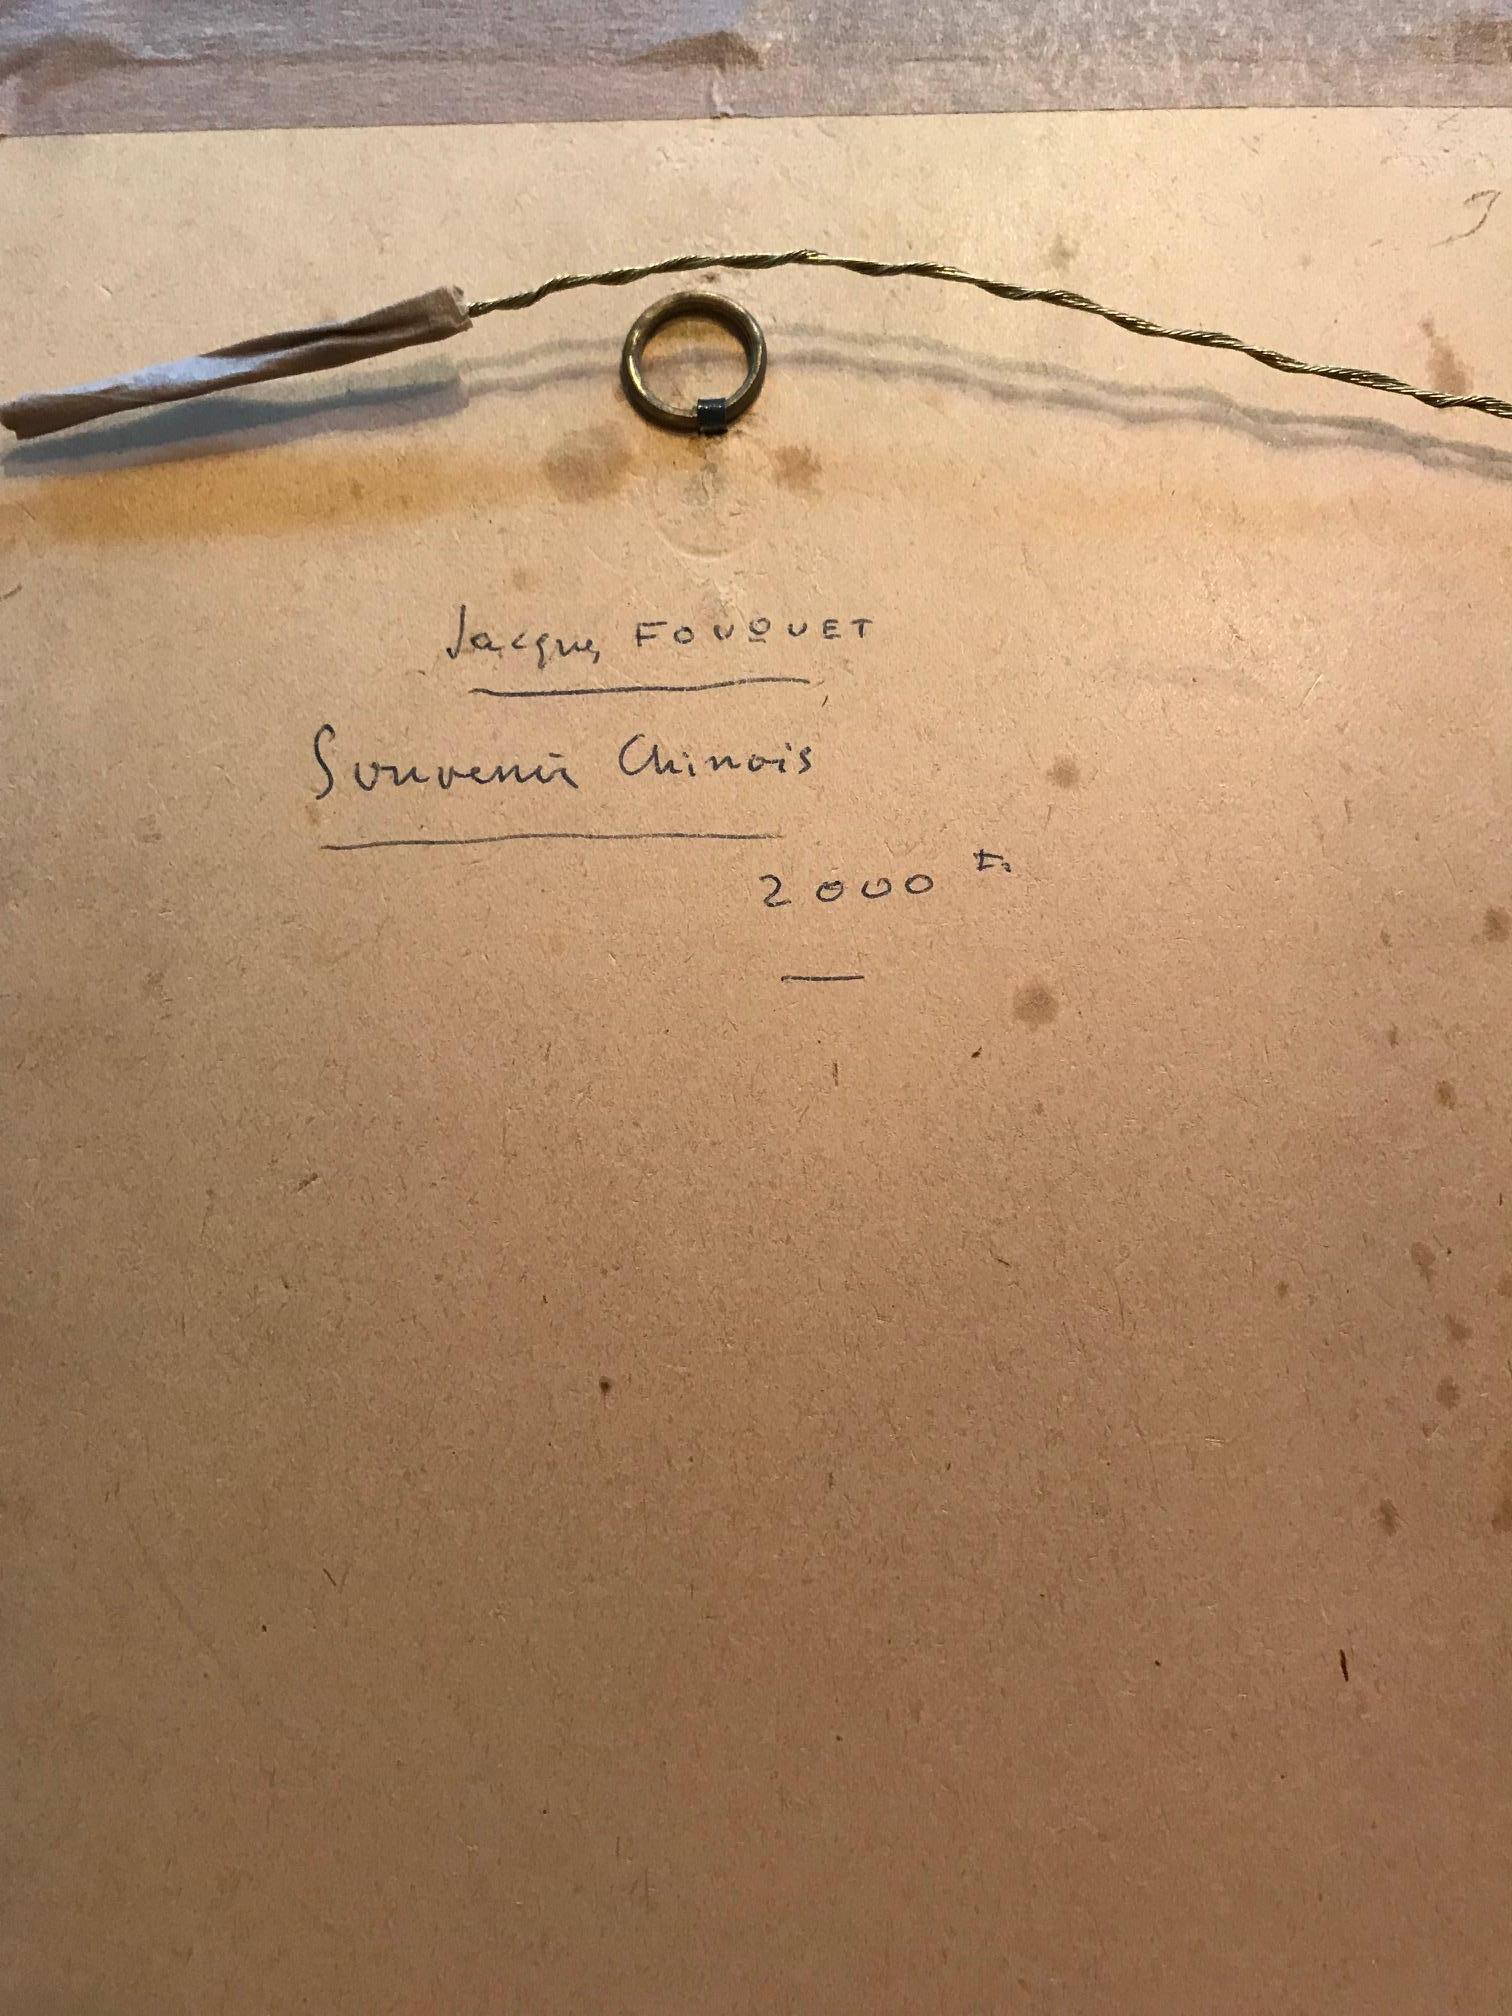 Jacques FOUQUET
Souvenir Chinois
2000 Fr